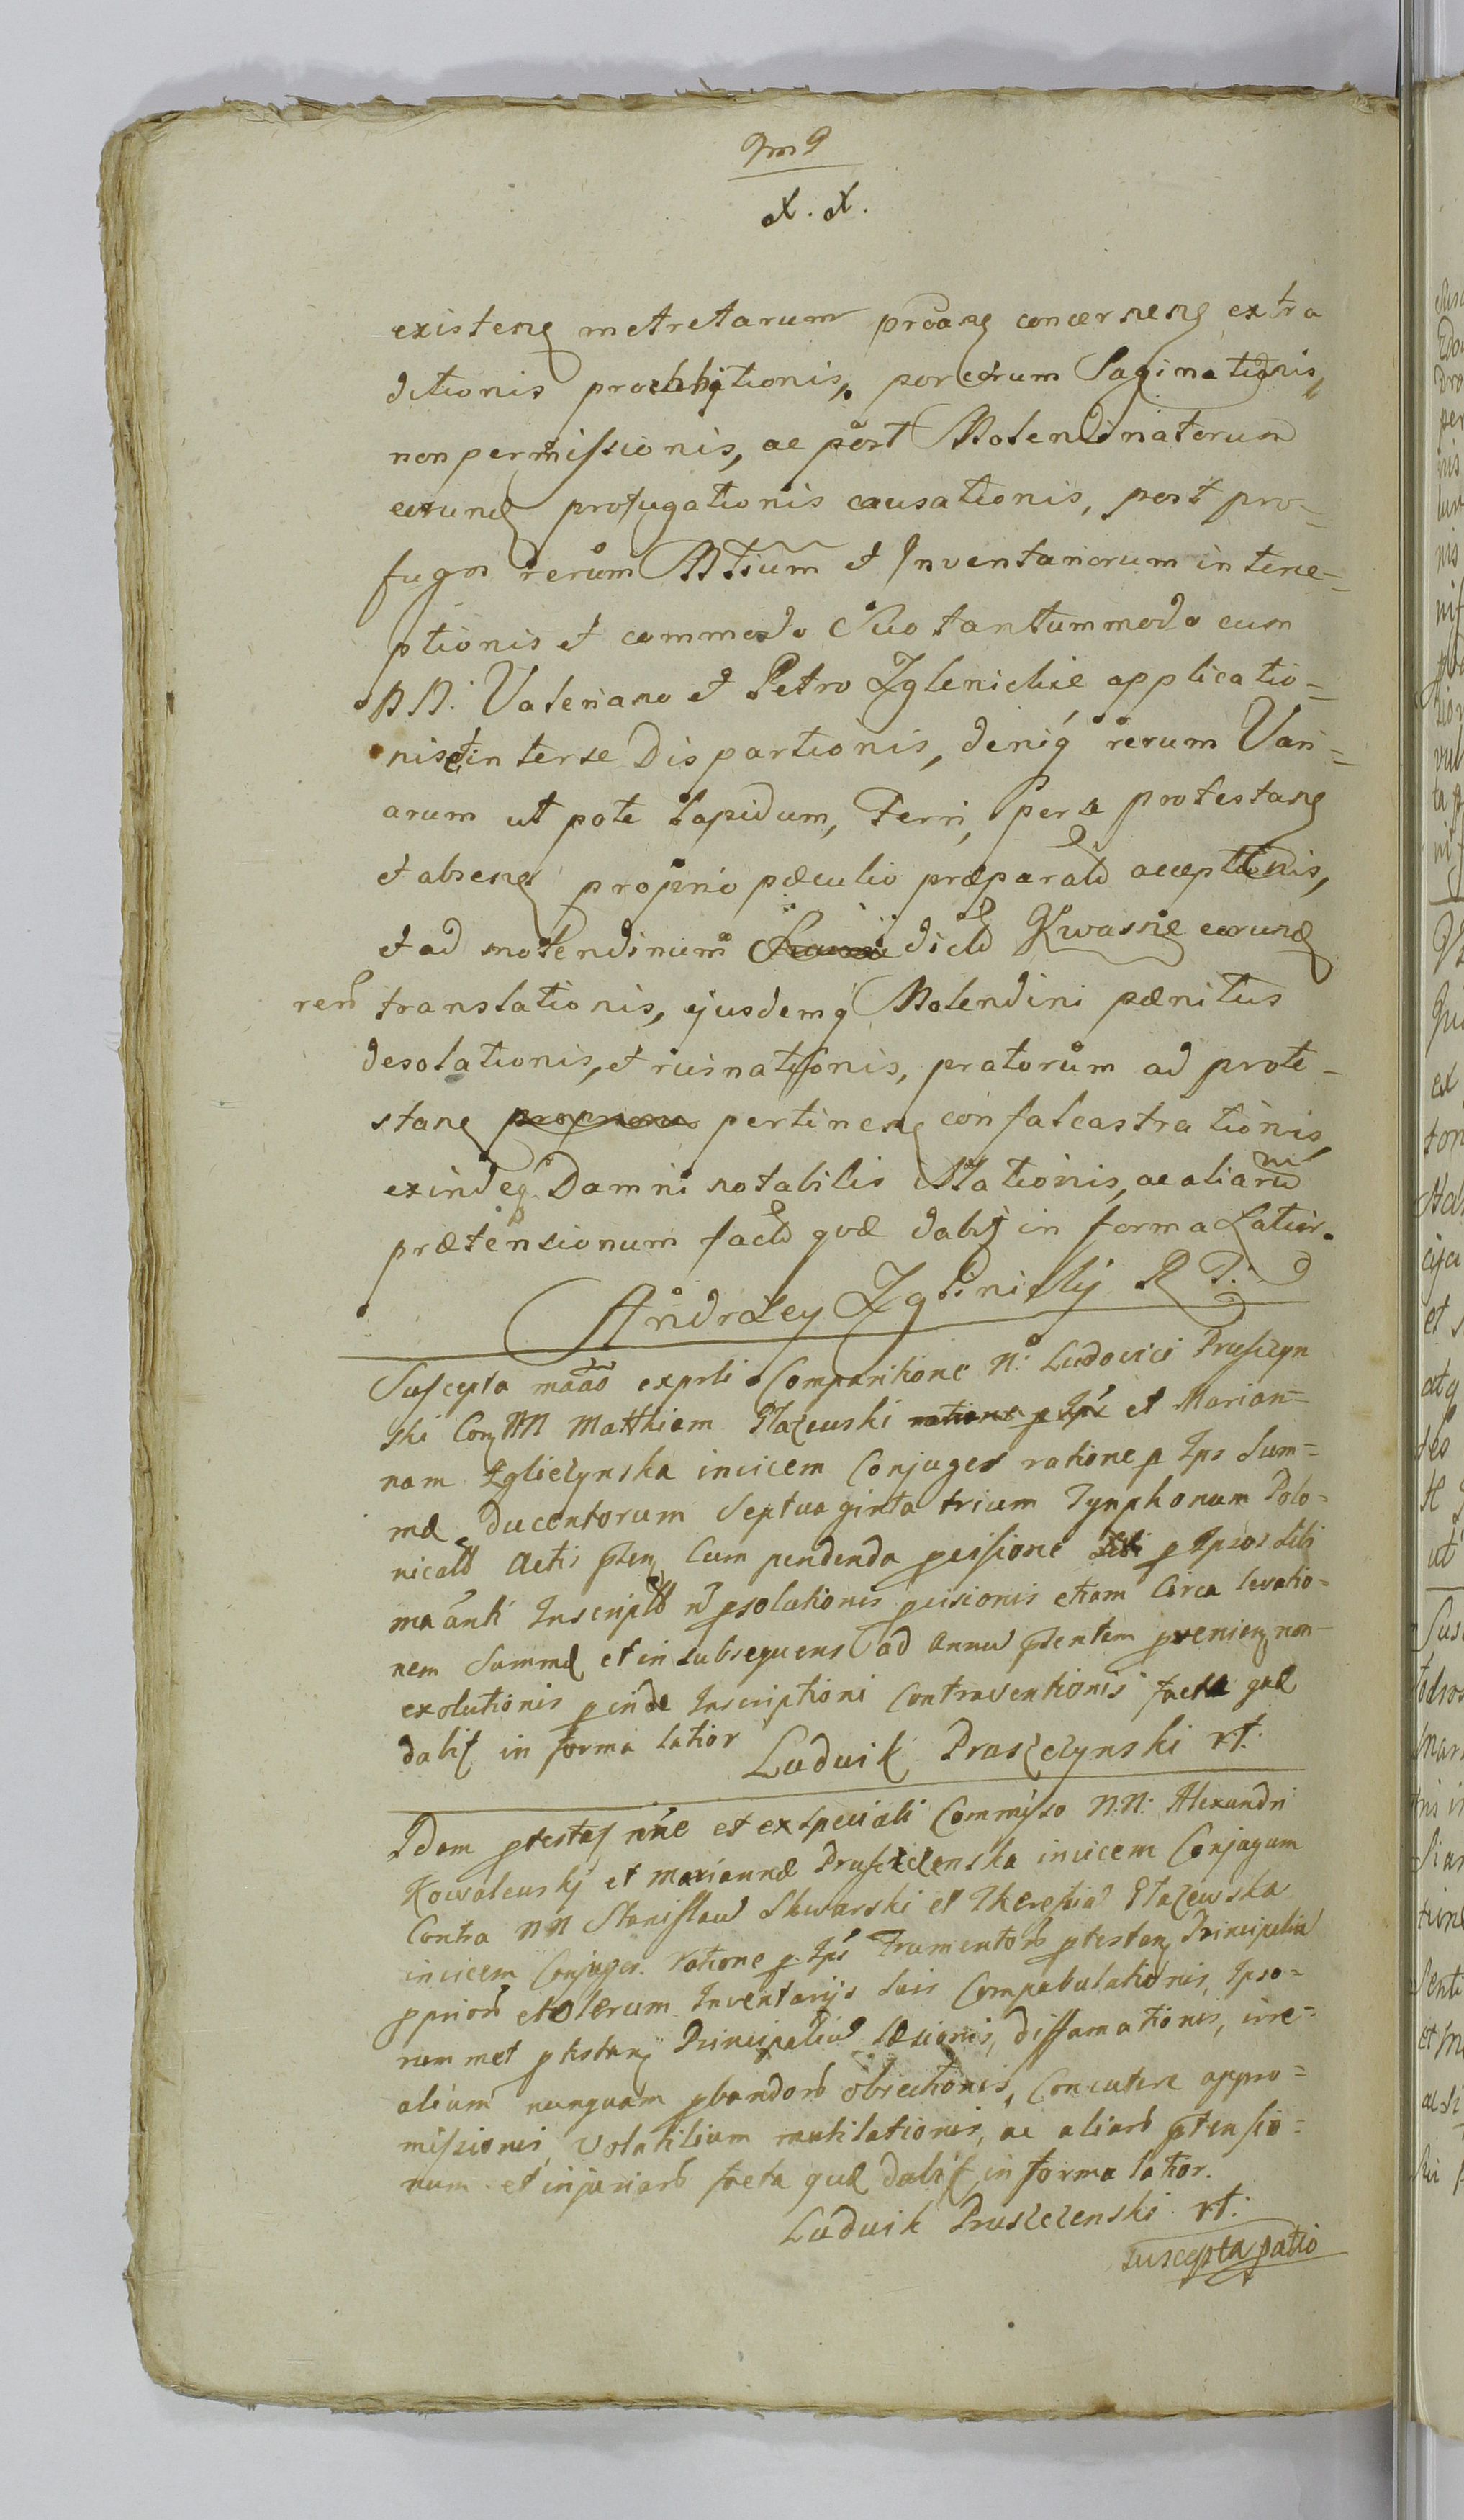 existens metretarum proans concernens extra
ditionis prohibitionis, porcorum Saginationis,
non permissionis, ac post Molendinatorum
eorund profugationis causationis, post pro=
fugos rerum Mtium et Inventariorum interce=
ptionis et commodo Suo tantummodo cum
NN: Valeriano et Petro Zglenickie applicatio=
nis et inter se Dispartionis, deniq rerum Vari=
arum ut pote Lapidum, Ferri, per se protestans
et absens proprio pæculio præparatar acceptionis,
et ad molendinum dictar Kwasne earund
rerū translationis, ejusdemq Molendini pænitus
desolationis, et ruinationis, pratorum ad prote=
stans pertinens confalcastrationis,
exindeq Damni notabilis Illationis, ac aliarum
prætensionum facta quæ dabit in forma Latior.
Andrzey Zglinicky R T:
Suscepta maão exprti Comparitione N: Ludovici Prusczyn
ski Con NN Matthiam Płażewski et Marian=
nam Zgliczynska invicem Conjuges ratione p Ips Sum=
mæ Ducentorum Septuaginta trium Tynphonum Polo=
nicalium Actis Cum pendenda pcissione p Ipsos Sibi
maãnti Inscriptar n psolutionis pcisionis etiam Circa levatio=
nem Summæ et in subsequens ad Annū pntem pveniens non=
exolutionis pinde Inscriptioni Contraventionis facta quæ
dabit in forma latior Ludwik Prasczynski rt:
Idem ptestas nne et ex speciali Commisso N.N: Alexandri
Kowalewskj et Mariannæ Prusczczenska invicem Conjugum
Contra NN Stanislaū Skwarski et Theressiā Płażewska
invicem Conjuges. ratione p Ips Frumentorū ptestans Principaliū
ppriorū et olerum Inventarijs suis Compabulationis, Ipso=
rummet ptestans Principaliū Læsionis, diffamationis, irre=
alium nunquam pbandorū obiectionis, Concutere appro=
missionis, Volatilium mutilationis, ac aliarū ptensio=
num et injuriarū facta quæ dabit in forma latior.
Ludwik Pruszczenski rt:
suscepta patio